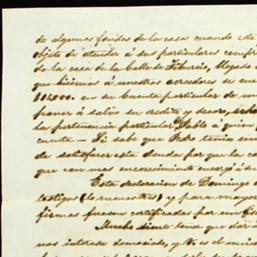 de algunos fondos de la casa cuando este
objeto de atender á sus particulares compr
de la casa de la Calle de Tiburcio, llegado
que hicimos á nuestros acreedores se en
102000. en su cuenta particular de m
poner á salvo su crédito y decoro, echo
la pertenencia particular Pablo á quien
cuenta — Si sabe que Pedro tenía en
de satisfacer esta deuda por que la ca
que con mas encarecimiento encargó á d
Esta declaracion de Domingo
testigos (lo menos tres) y para mayor
firmas fuesen certificadas por un Es
Mucho siento tener que dar á
nos intereses demasiado, y No es el uni